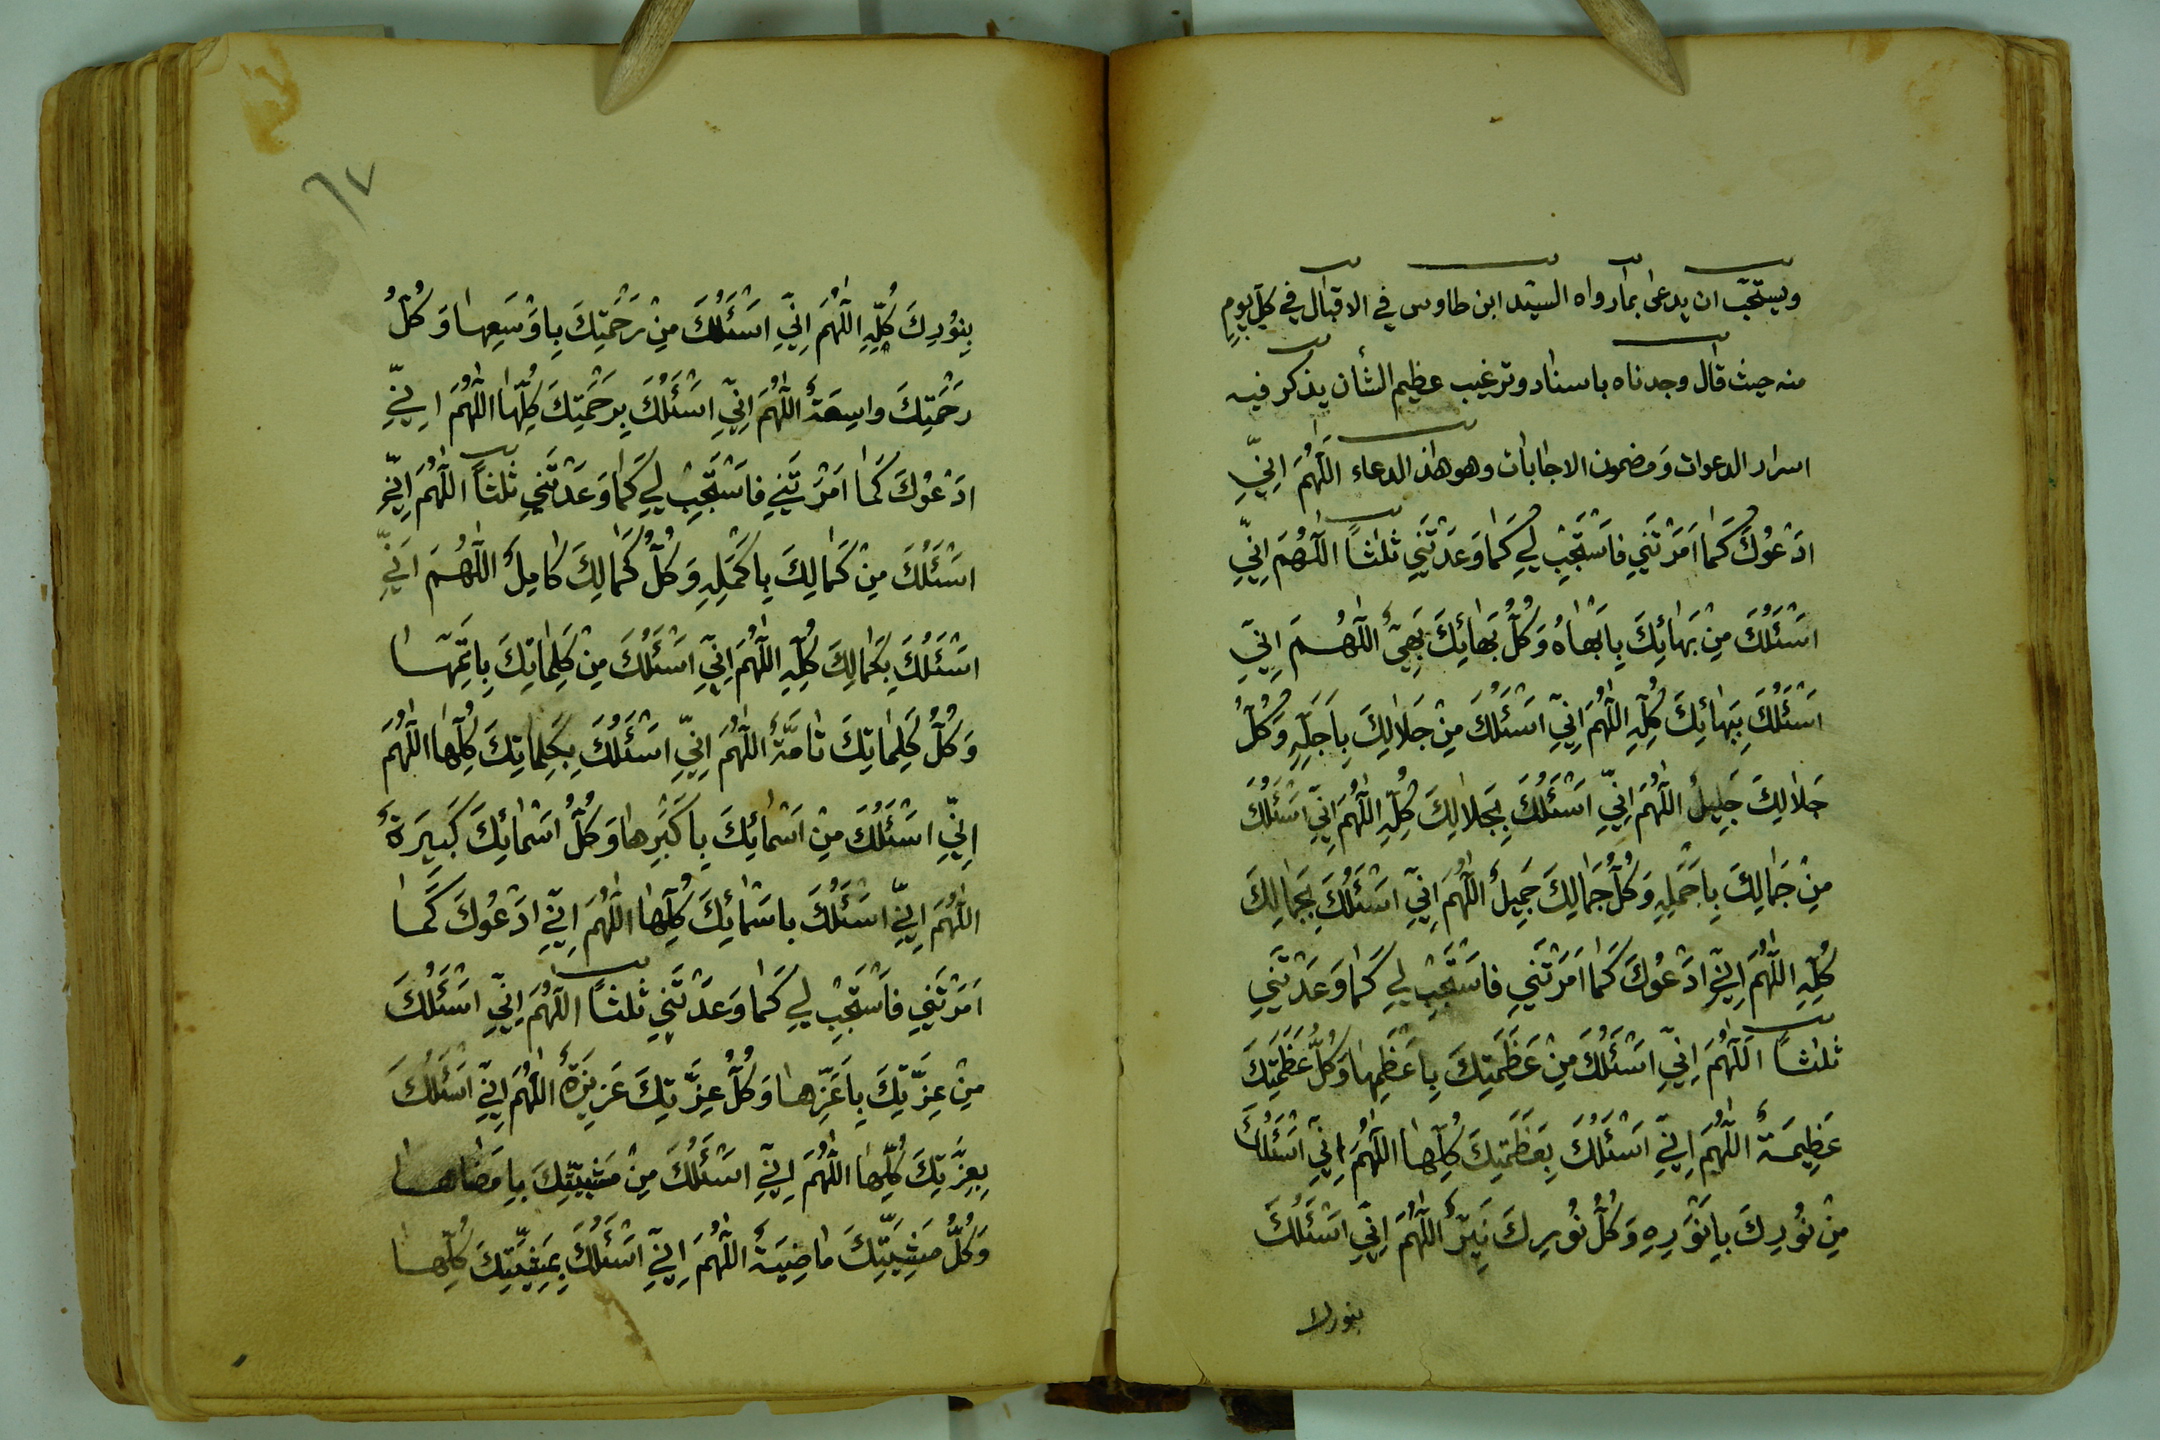 ويستحبّ ان يدعى بما رواه السيّد ابن طاوس في الاقبال في كلّ يومٍ
منه حيث قال وجدناه باسناد وترغيب عظيم الشأن يذكر فيه
اسرار الدعوات ومضمون الاجابات وهو هذا الدعاء اَللّٰهُمَ اِنّي
ادَْعُوكَ كَمٰا اَمَرْتَنيِ فاَسْتَجِبْ لِي كَمٰا وَعَدْتَنيِ ثلثاً اَللّٰهُمَ اِنّي
اَسْئَلُكَ مِنْ بَهٰائِكَ بِاَبْهٰاهُ وَكُلُّ بَهٰائِكَ بَهِيٌّ اَللّٰهُمَ اِنّي
اَسْئَلُكَ بِبَهٰائِكَ كُلِّهِ اَللّٰهُمَ اِنّي اَسْئَلُكَ مِنْ جَلاٰلِكَ بِاَجَلِّهِ وَكُلُّ
جَلاٰلِكَ جَلِيلٌ اَللّٰهُمَ اِنّي اَسْئَلُكَ بِجَلاٰلِكَ كُلِّهِ اَللّٰهُمَ اِنّي اَسْئَلُكَ
مِنْ جَمٰالِكَ بِاَجْمَلِهِ وَكُلُّ جَمٰالِكَ جَمِيلٌ اَللّٰهُمَ اِنّي اَسْئَلُكَ بِجَمٰالِكَ
كُلِّهِ اَللّٰهُمَ اِنّي ادَْعُوكَ كَمٰا اَمَرْتَنيِ فاَسْتَجِبْ لِي كَمٰا وَعَدْتَنيِ
ثلٰثاً اَللّٰهُمَ اِنّي اَسْئَلُكَ مِنْ عَظَمَتِكَ بِاَعْظَمِهٰا وَكُلُّ عَظَمَتِكَ
عَظِيمَةٌ اَللّٰهُمَ اِنّي اَسْئَلُكَ بِعَظَمَتِكَ كُلِّهٰا اَللّٰهُمَ اِنّي اَسْئَلُكَ
مِنْ نُورِكَ بِاَنْوَرِهِ وَكُلُّ نُورِكَ نَيِّرٌ اَللّٰهُمَ اِنّي اَسْئَلُكَ
بنورك
٦٧
بِنُورِكَ كُلِّهِ اَللّٰهُمَ اِنّي اَسْئَلُكَ مِنْ رَحْمَتِكَ بِاَوْسَعِهٰا وَكُلُّ
رَحْمَتِكَ واسِعَةٌ اَللّٰهُمَ اِنّي اَسْئَلُكَ بِرَحْمَتِكَ كُلِّهٰا اَللّٰهُمَ اِنّي
ادَْعُوكَ كَمٰا اَمَرْتَنيِ فاَسْتَجِبْ لِي كَمٰا وَعَدْتَنيِ ثلثاً اَللّٰهُمَ اِنّي
اَسْئَلُكَ مِنْ كَمٰالِكَ بِاَكْمَلِهِ وَكُلُّ كَمٰالِكَ كٰامِلٌ اَللّٰهُمَ اِنّي
اَسْئَلُكَ بِكَمٰالِكَ كُلِّهِ اَللّٰهُمَ اِنّي اَسْئَلُكَ مِنْ كَلِمٰاتِكَ بِاَتَمِّهٰا
وَكُلُّ كَلِمٰاتِكَ تٰامَّةٌ اَللّٰهُمَ اِنّي اَسْئَلُكَ بِكَلِمٰاتِكَ كُلِّهٰا اَللّٰهُمَ
اِنّي اَسْئَلُكَ مِنْ اَسْمٰائِكَ بِاَكْبَرِهٰا وَكُلُّ اَسْمٰائِكَ كَبِيَرةٌ
اَللّٰهُمَ اِنّي اَسْئَلُكَ باَسْمٰائِكَ كُلِّهٰا اَللّٰهُمَ اِنّي ادَْعُوكَ كَمٰا
اَمَرْتَنيِ فاَسْتَجِبْ لِي كَمٰا وَعَدْتَنيِ ثلثاً اَللّٰهُمَ اِنّي اَسْئَلُكَ
مِنْ عِزَّتِكَ بِاَعَزِّهٰا وَكُلُّ عِزَّتِكَ عَزِيزَةٌ اَللّٰهُمَ اِنّي اَسْئَلُكَ
بِعِزَّتِكَ كُلِّهٰا اَللّٰهُمَ اِنّي اَسْئَلُكَ مِنْ مَشِيَّتِكَ بِاَمَضٰاهٰا
وَكُلُّ مَشِيَّتِكَ مٰاضِيَةٌ اَللّٰهُمَ اِنّي اَسْئَلُكَ بِمَشِيَّتِكَ كُلِّهٰا